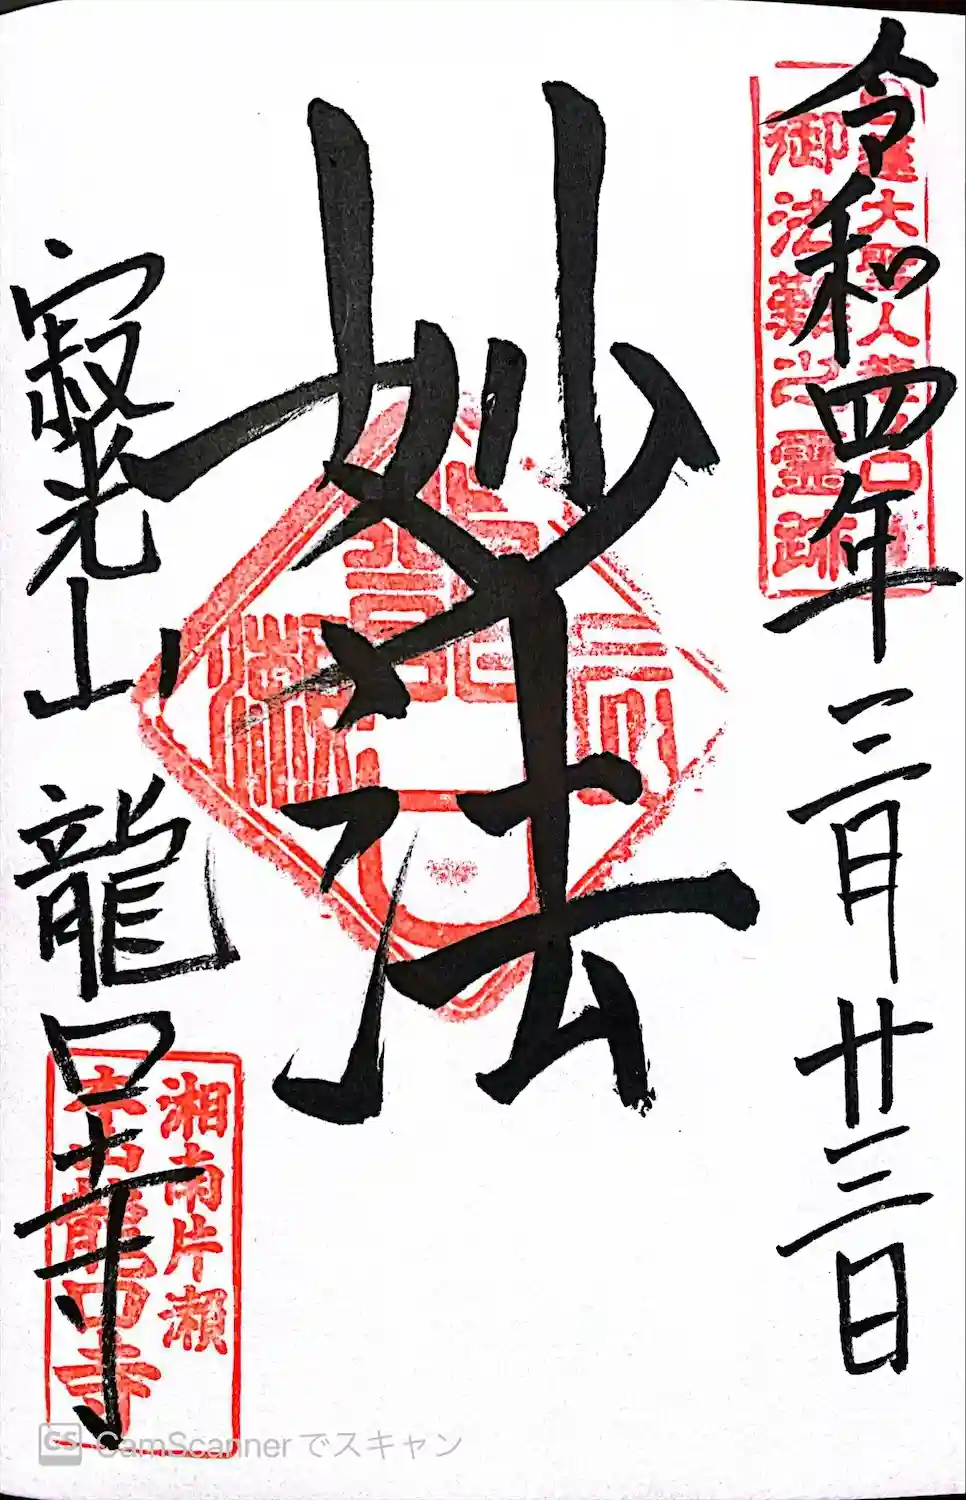 令和四年三月廿三日
大聖人
御法難之靈跡
妙法
寂光山 龍口寺
湘南片瀬
龍口寺
CS CamScanner でスキャン